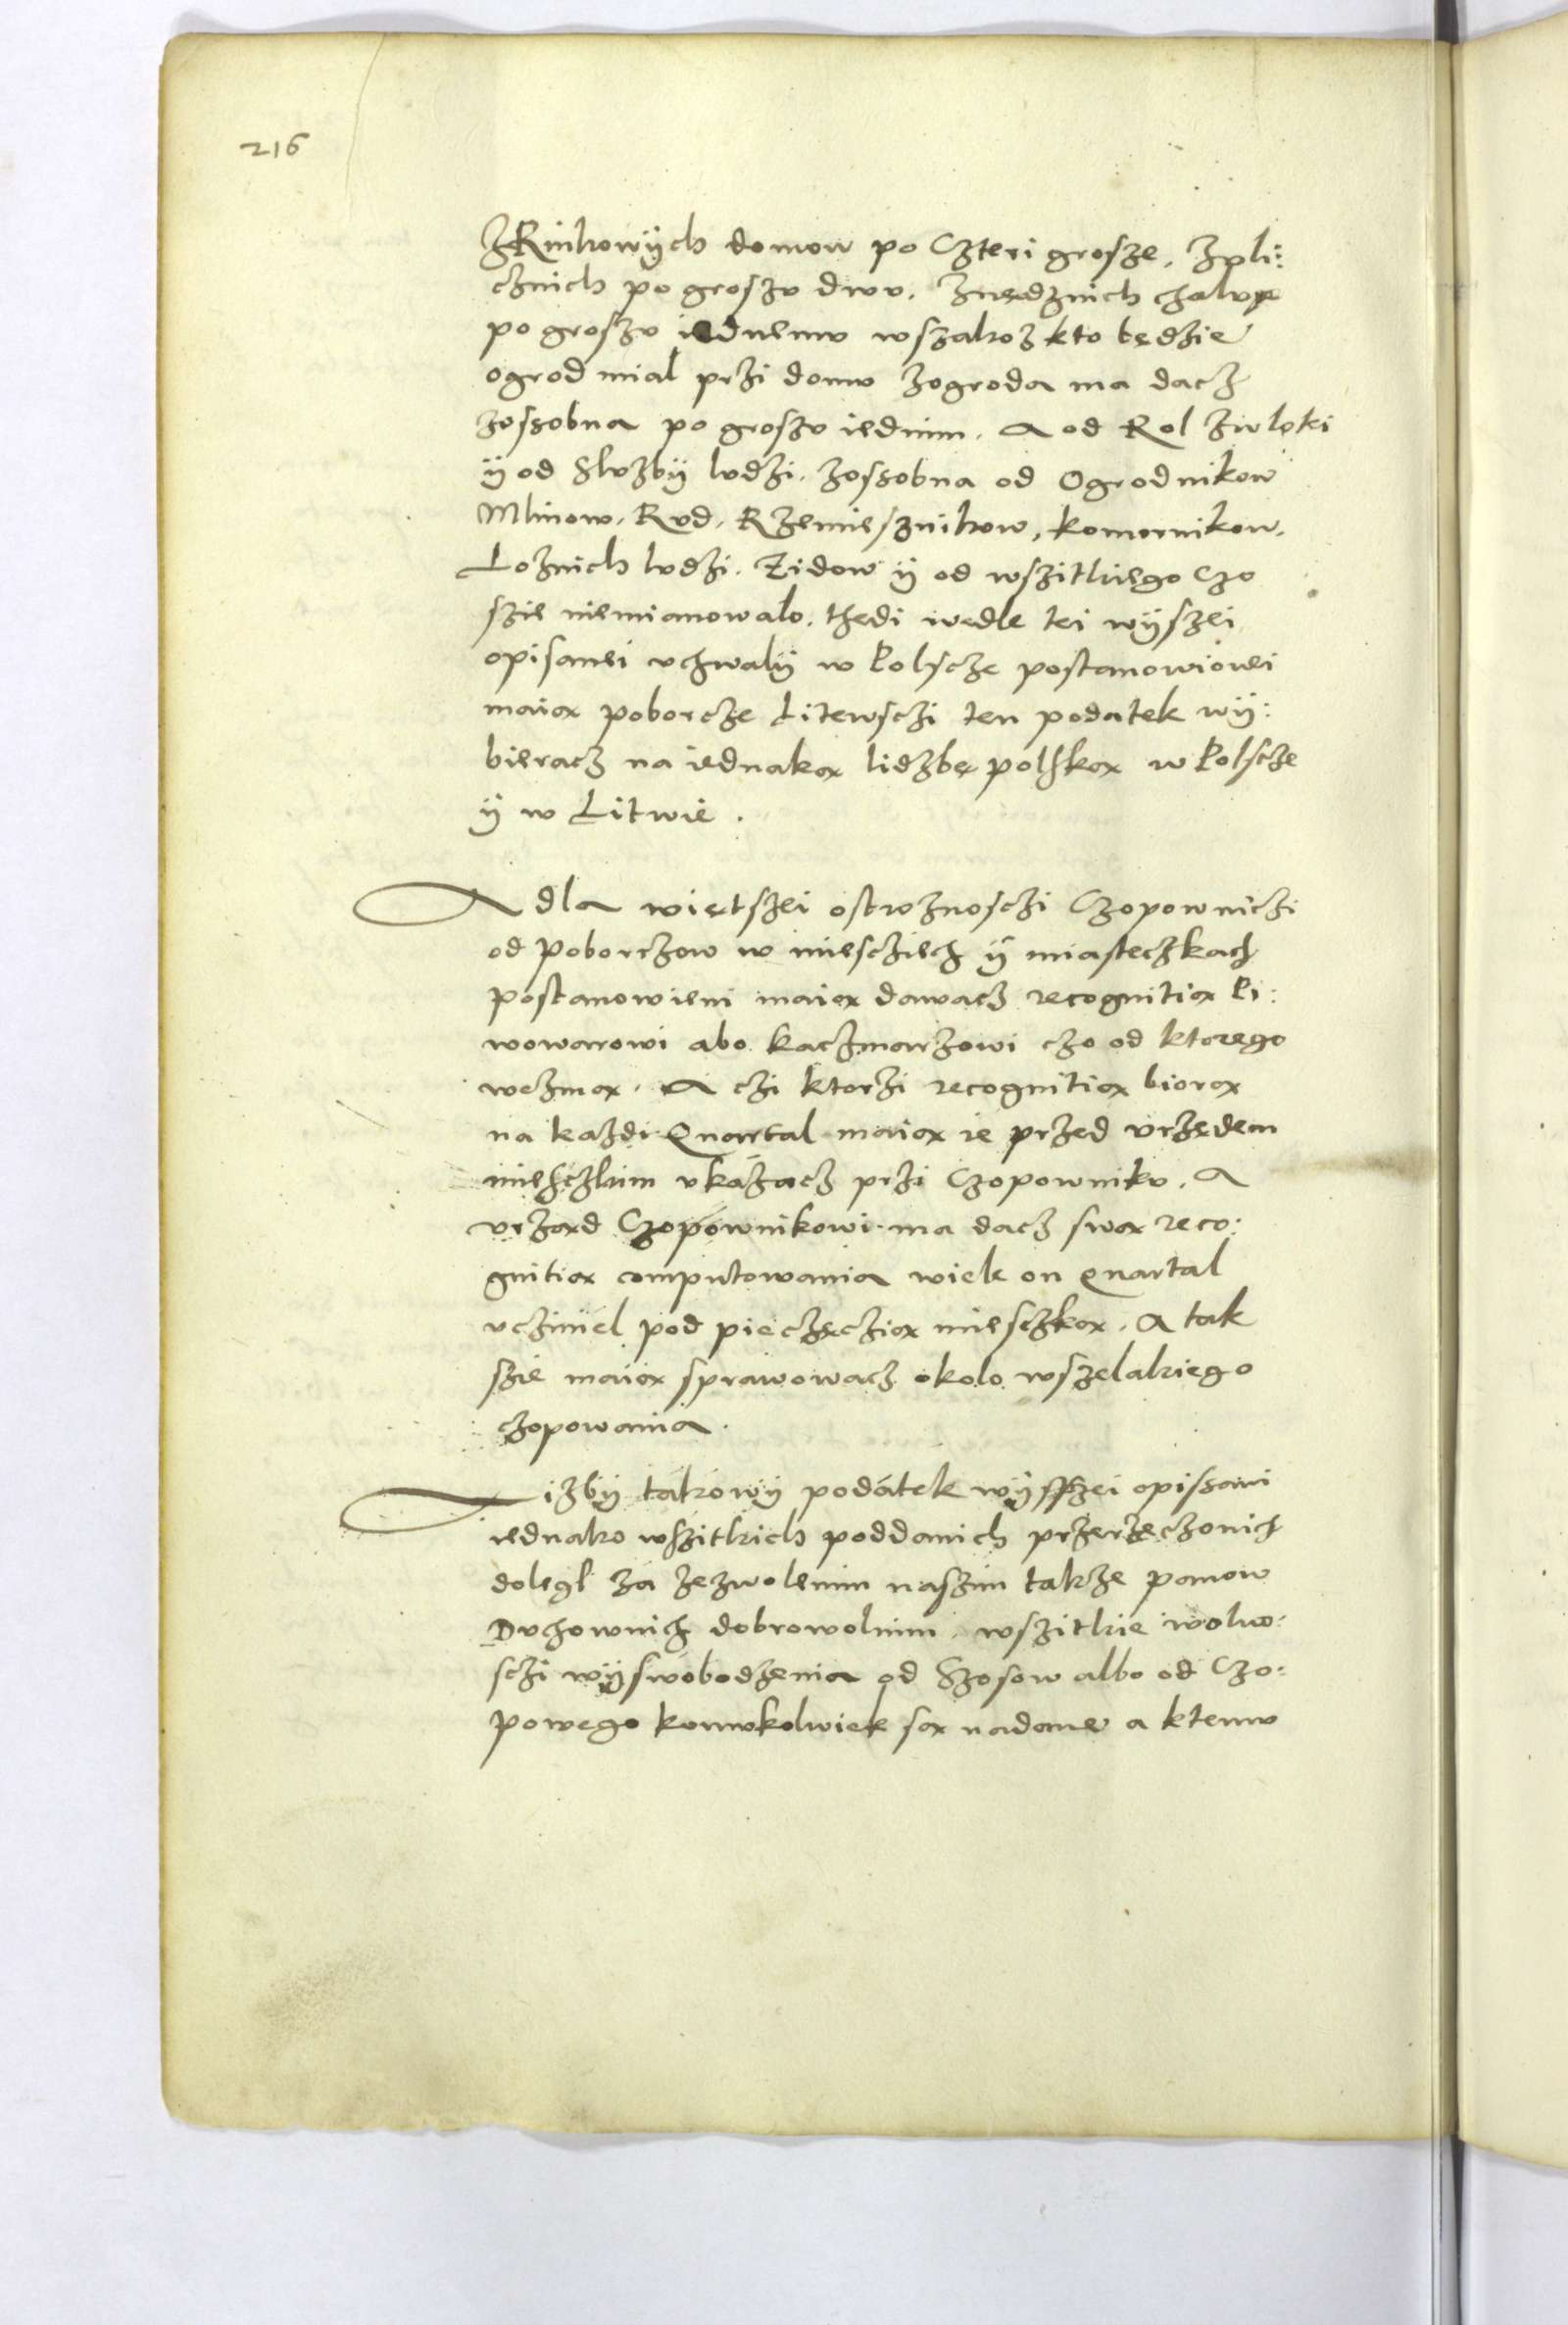 216
ZRinkowÿch domow po Czteri grosze, Zpli:
cznich po groszv dwv. Znędznich chalvp
po groszv iednemv wszakoz kto będzie
ogrod mial przi domv zogroda ma dacz
zossobna po groszv iednim. A od Rol zwloki
ÿ od Slvzbÿ lvdzi. zossobna od Ogrodnikow
Mlinow. Rvd. Rzemiesznikow, komornikow.
Loznich lvdzi. Zidow ÿ od wszitkiego Czo
szie niemianowalo. thedi wedle tei wÿszei
opisanei vchwalÿ w Polscze postanowionei
maiax poborcze Litewsczi ten podatek wÿ:
bieracz na iednakax lidzbę polskax w Polscze
ÿ w Litwie.
A dla więtszei ostroznosczi Czopowniczi
od Poborczow w miescziech ÿ miasteczkach
postanowieni maiax dawacz recognitiax Pi:
wowarowi abo kaczmarzowi czo od ktorego
wezmax. A czi ktorzi recognitiax biorax
na kazdi Quartal maiax ie przed vrzędem
miesczkim vkazacz przi Czopownikv. A
vrzaxd Czopownikowi ma dacz swax reco:
gnitiax computowania wiele on quartal
vczinil pod pieczęcziax miesczkax. A tak
szie maiax sprawowacz okolo wszelakiego
czopowania.
A izbÿ takowÿ podatek wÿsszei opissani
iednako wszitkich poddanich przerzeczonich
dolegl za zezwolenim naszim takze panow
Dvchownich dobrowolnim. wszitkie wolno:
sczi wÿswobodzenia od Szosow albo od Czo:
powego komvkolwiek sax nadane a ktemv